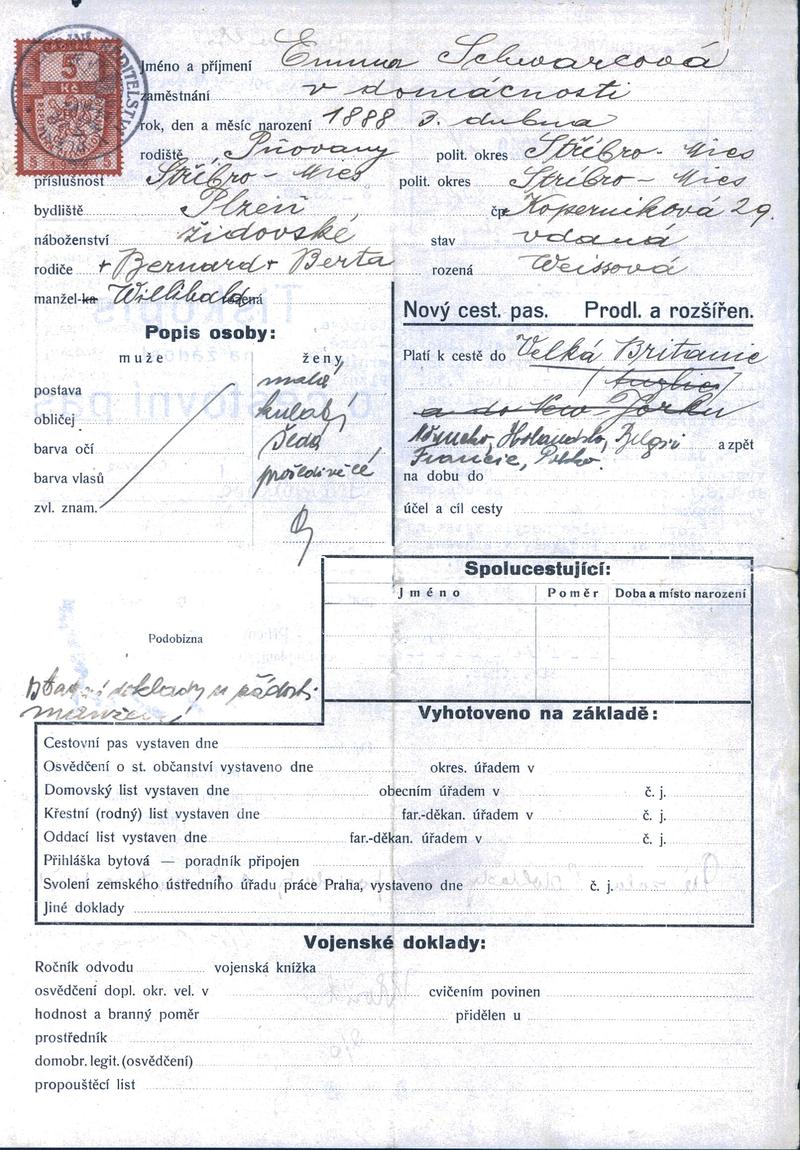 5
Kč
Jméno a příjmení Emma Schwarcová
zaměstnání v domácnosti
rok, den a měsíc narození 1888 3. dubna
rodiště Pňovany polit. okres Stříbro - Mies
příslušnost Stříbro - Mies polit. okres Stříbro - Mies
bydliště Plzeň čp. Koperniková 29.
náboženství židovské stav vdaná
rodiče + Bernard + Berta rozená Weissová
manžel-ka Willibald rozená
Nový cest. pas. Prodl. a rozšířen.
Popis osoby:
muže ženy
Platí k cestě do Velká Britanie
(Anglie)
a do New Yorku
Německo, Holandsko, Belgie a zpět
Francie, Polsko.
na dobu do
účel a cíl cesty
postava malá
obličej kulatý
barva očí šedá
barva vlasů prošedivělé
zvl. znam.
Spolucestující:
Jméno Poměr Doba a místo narození
Podobizna
doklady u žádosti
Vyhotoveno na základě:
Cestovní pas vystaven dne
Osvědčení o st. občanství vystaveno dne okres. úřadem v
Domovský list vystaven dne obecním úřadem v č. j.
Křestní (rodný) list vystaven dne far.-děkan. úřadem v č. j.
Oddací list vystaven dne far.-děkan. úřadem v č. j.
Přihláška bytová — poradník připojen
Svolení zemského ústředního úřadu práce Praha, vystaveno dne č. j.
Jiné doklady
Vojenské doklady:
Ročník odvodu vojenská knížka
osvědčení dopl. okr. vel. v cvičením povinen
hodnost a branný poměr přidělen u
prostředník
domobr. legit. (osvědčení)
propouštěcí list